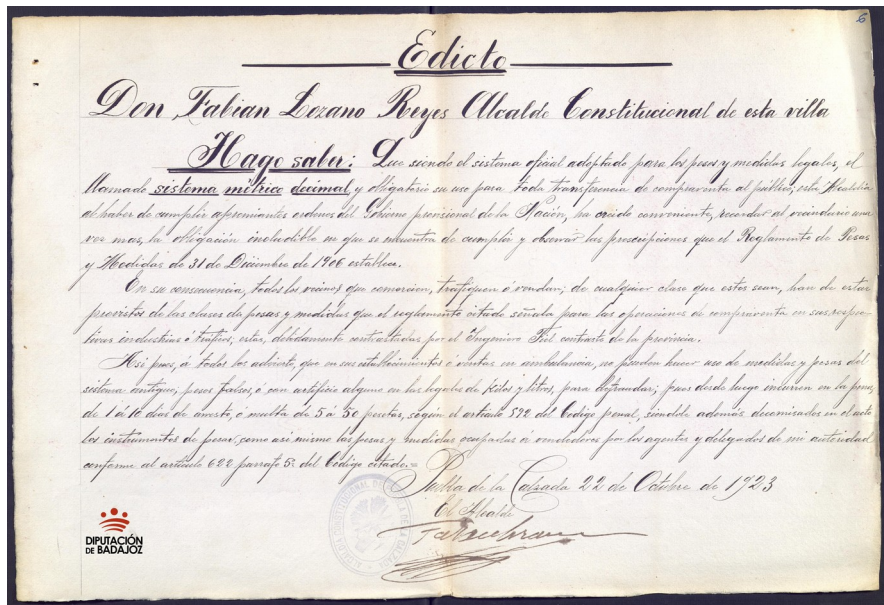 6
Edicto
Don Fabian Lozano Reyes Alcalde Constitucional de esta villa
Hago saber: Que siendo el sistema oficial adoptado para las pesas y medidas legales, el
llamado sistema métrico decimal, y obligatorio su uso para toda transferencia de compraventa al público, esta Alcaldia
de haber de cumplir apremiantes ordenes del Gobierno provisional de la Nación, ha creido conveniente, recordar al vecindario una
vez mas, la obligación ineludible en que se encuentra de cumplir y observar las prescripciones que el Reglamento de Pesas
y Medidas de 31 de Diciembre de 1906 establece.
En su consecuencia, todos los vecinos que comercien, trafiquen ó vendan; de cualquier clase que estos sean, han de estar
provistos de las clases de pesas y medidas que el reglamento citado señala para las operaciones de compraventa en sus respec-
tivas industrias ó trafico, estas, debidamente contrastadas, por el Ingeniero Fiel contraste de la provincia.
Asi pues, á todos los advierto, que en sus establecimientos ó ventas en ambulancia, no pueden hacer uso de medidas y pesas del
sistema antiguo, pesos falsos, ó con artificio alguno en las legales de kilos y litros, para defraudar; pues desde luego incurren en la pena,
de 1 á 10 dias de arresto, ó multa de 5 á 50 pesetas, según el articulo 592 del Codigo penal, siendole además decomisados en el acto
los instrumentos de pesar, como asi mismo las pesas y medidas ocupadas á vendedores por los agentes y delegados de mi autoridad
conforme al articulo 622 parrafo 5º del Código citado.=
Puebla de la Calzada 22 de Octubre de 1923
El Alcalde
DIPUTACIÓN
DE BADAJOZ